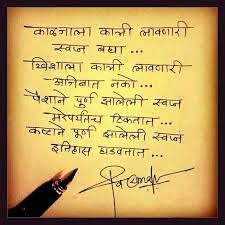 काळजाला कात्री लावणारी
स्वप्न बघा ...
खिशाला कात्री लावणारी
अजिबात नको ...
पैशाने पुर्ण झालेली स्वप्न
मरेपर्यंतच टिकतात ...
कष्टाने पूर्ण झालेली स्वप्न
इतिहास घडवतात ...